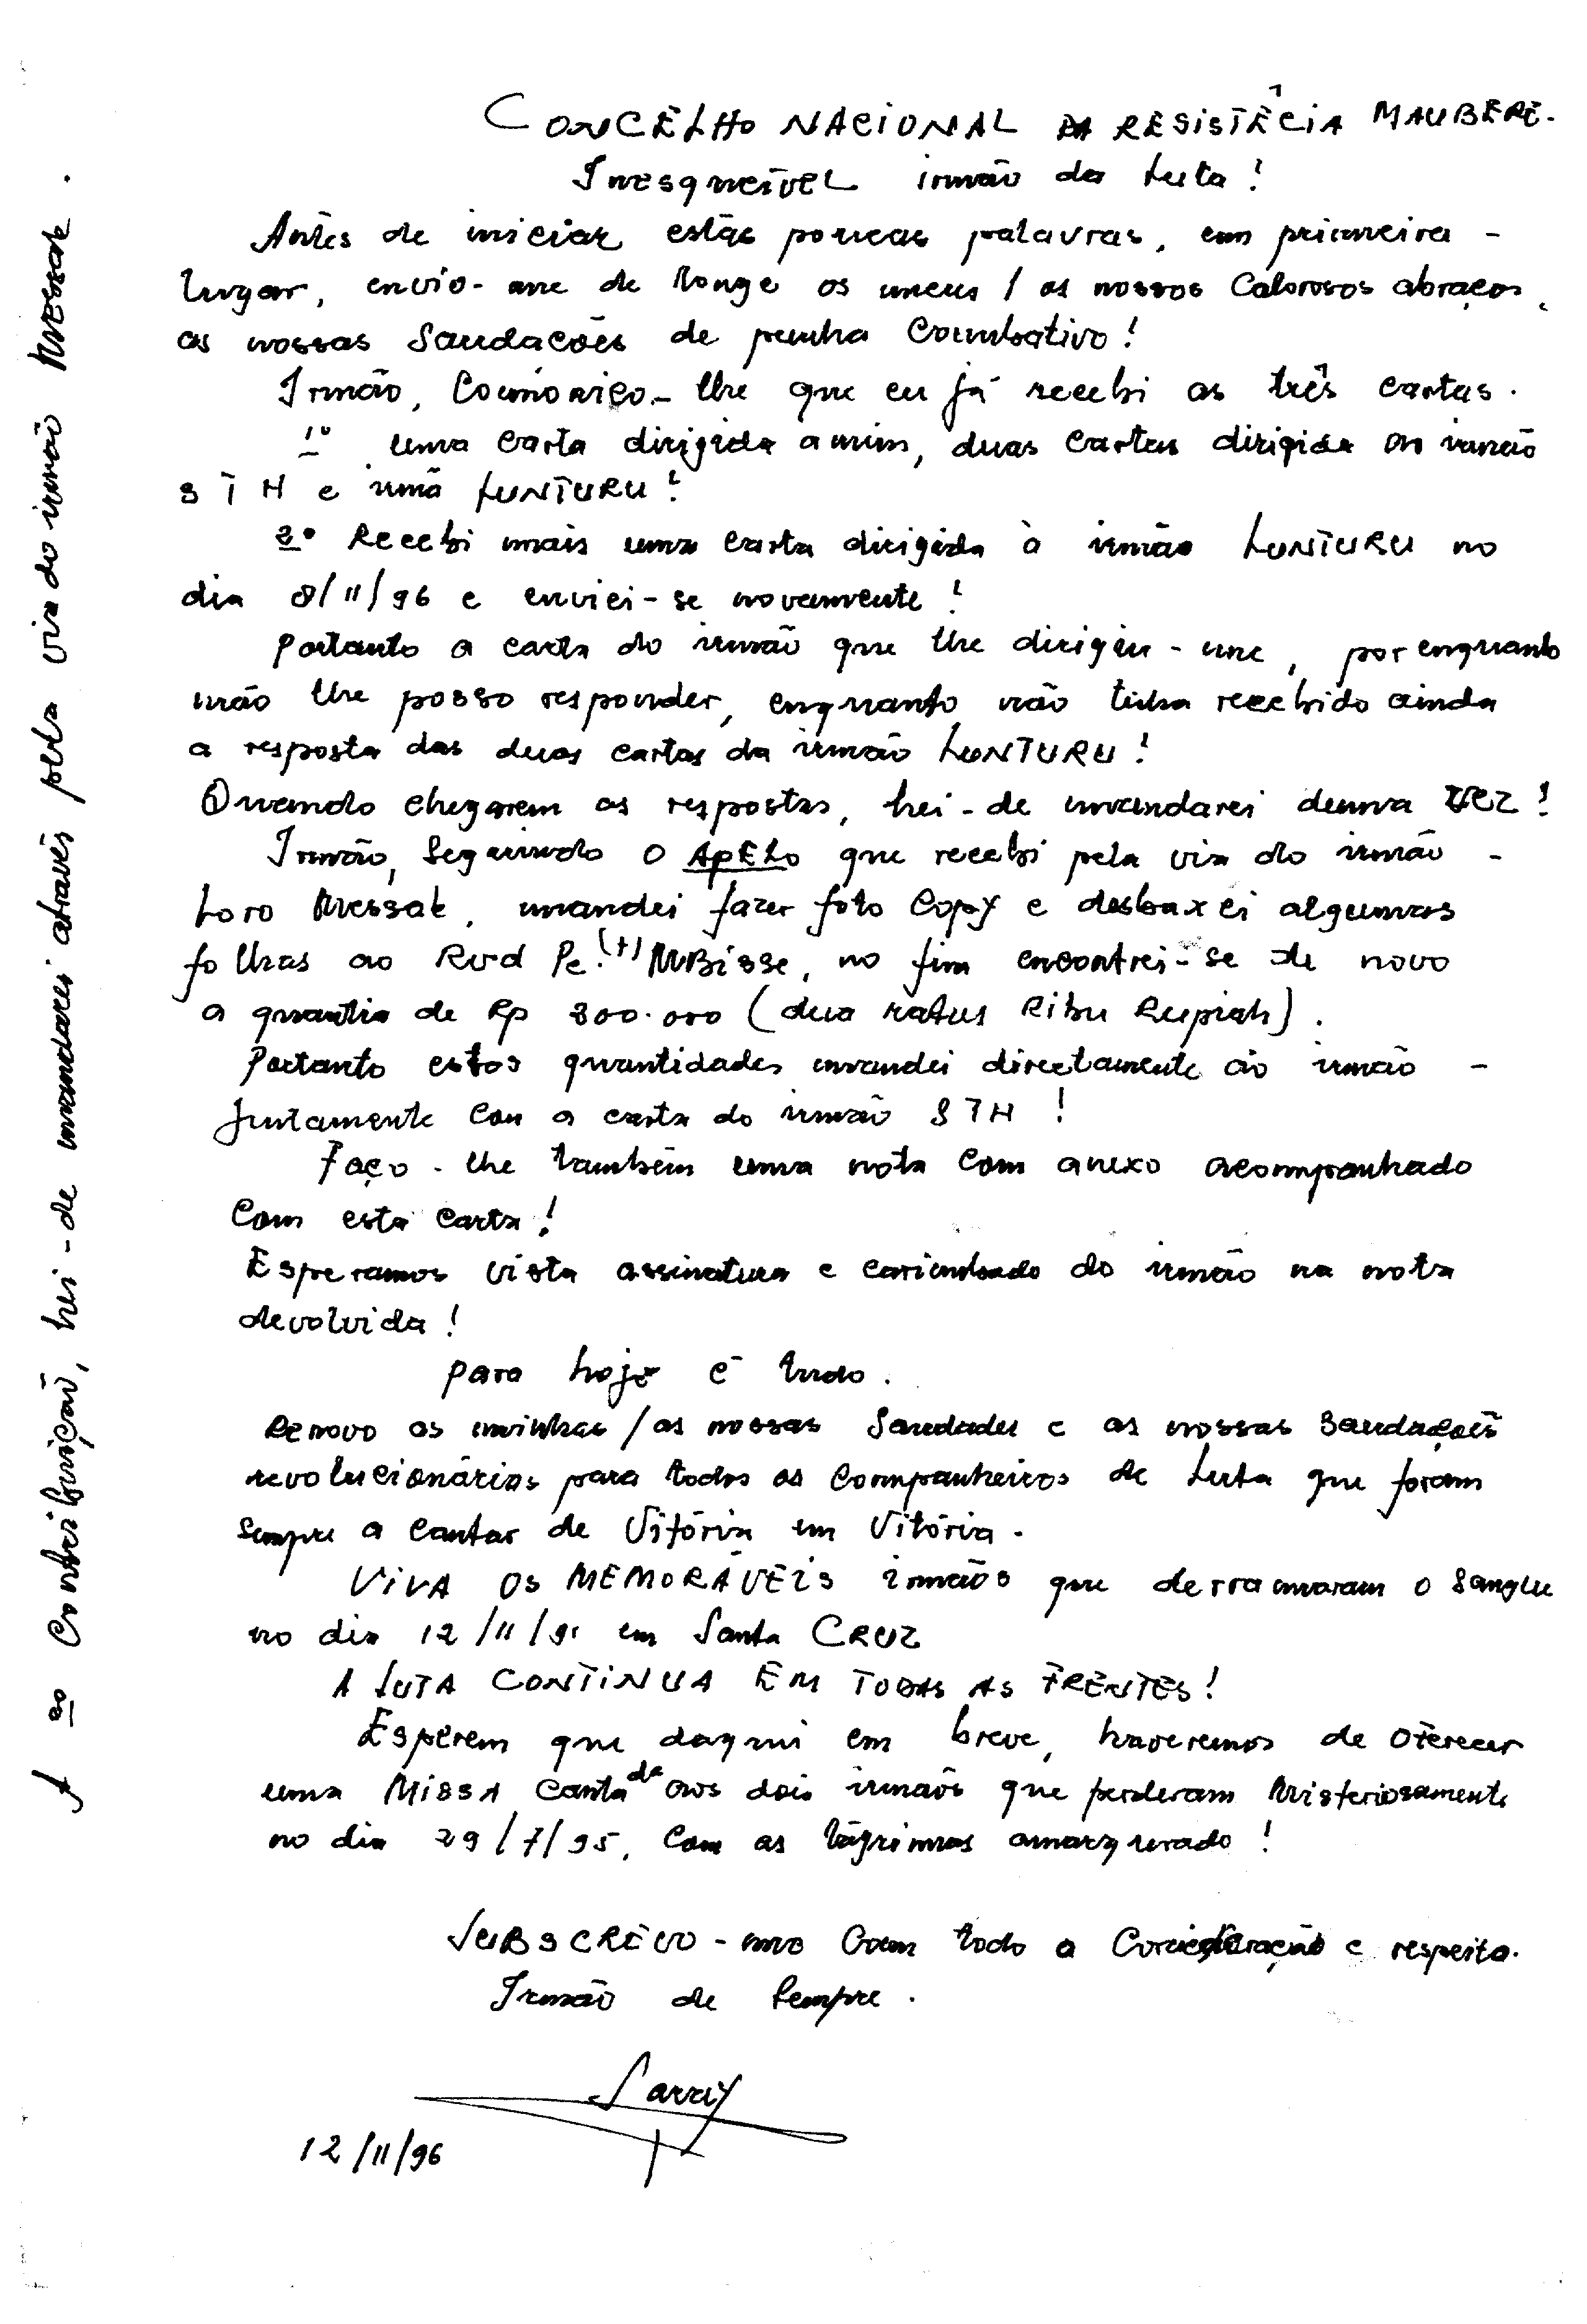 CONCELHO NACIONAL DA RESISTÊCIA MAUBERE.
Inesqueível irmão da Luta!
Antes de iniciar estás poucas palavras, em primeira -
lugar, envio-me de longe os meus / os nossos Calorosos abraços,
as nossas Saudacões de punha Combativo!
Irmão, Comonico-lhe que eu já recebi as três cartas.
1º uma carta dirigida a mim, duas cartas dirigida ao irmão
STH e irmã LUNTURU!
2º Recebi mais uma carta dirigida à irmão LUNTURU no
dia 8/11/96 e enviei-se novamente!
Portanto a carta do irmão que lhe dirigiu-me, por enquanto
não lhe posso responder, enquanto não tinha recebido ainda
a resposta das duas cartas da irmão LUNTURU!
Quando chegarem as respostas, hei-de mandarei duma vez!
Irmão, Seguindo o APELO que recebi pela via do irmão -
Loro Messak, mandei fazer foto Copy e desbaxei algumas
folhas ao Rvd Pe.(+) MBisse, no fim encontrei-se de novo
a quantia de Rp 200.000 (dua ratus Ribu Rupiah).
Portanto estas quantidades mandei directamente ao irmão -
Juntamente Con a carta do irmão STH!
Faço-lhe também uma nota com anexo acompanhado
Com esta Carta!
Esperamos vista assinatura e carimbado do irmão na nota
devolvida!
para hoje é tudo.
Renovo as minhas / as nossas Saudades e as nossas Saudações
revolucionárias para todos os Companheiros de Luta que foram
sempre a Cantar de Vitória em Vitória.
VIVA OS MEMORÁVEIS irmãos que derramaram o Sangue
no dia 12/11/91 em Santa CRUZ
A LUTA CONTINUA EM TODAS AS FRENTES!
Esperem que daqui em breve, haveremos de Oferecer
uma MISSA Cantada aos dois irmãos que perderam Misteriosamente
no dia 29/7/95, Com as lágrimas amargurado!
SUBSCREVO-me Com todo a e respeito.
Irmão de Sempre.
Larriy
12/11/96
A 2º Contribuição, hei-de mandarei através pela via do irmão Messak.